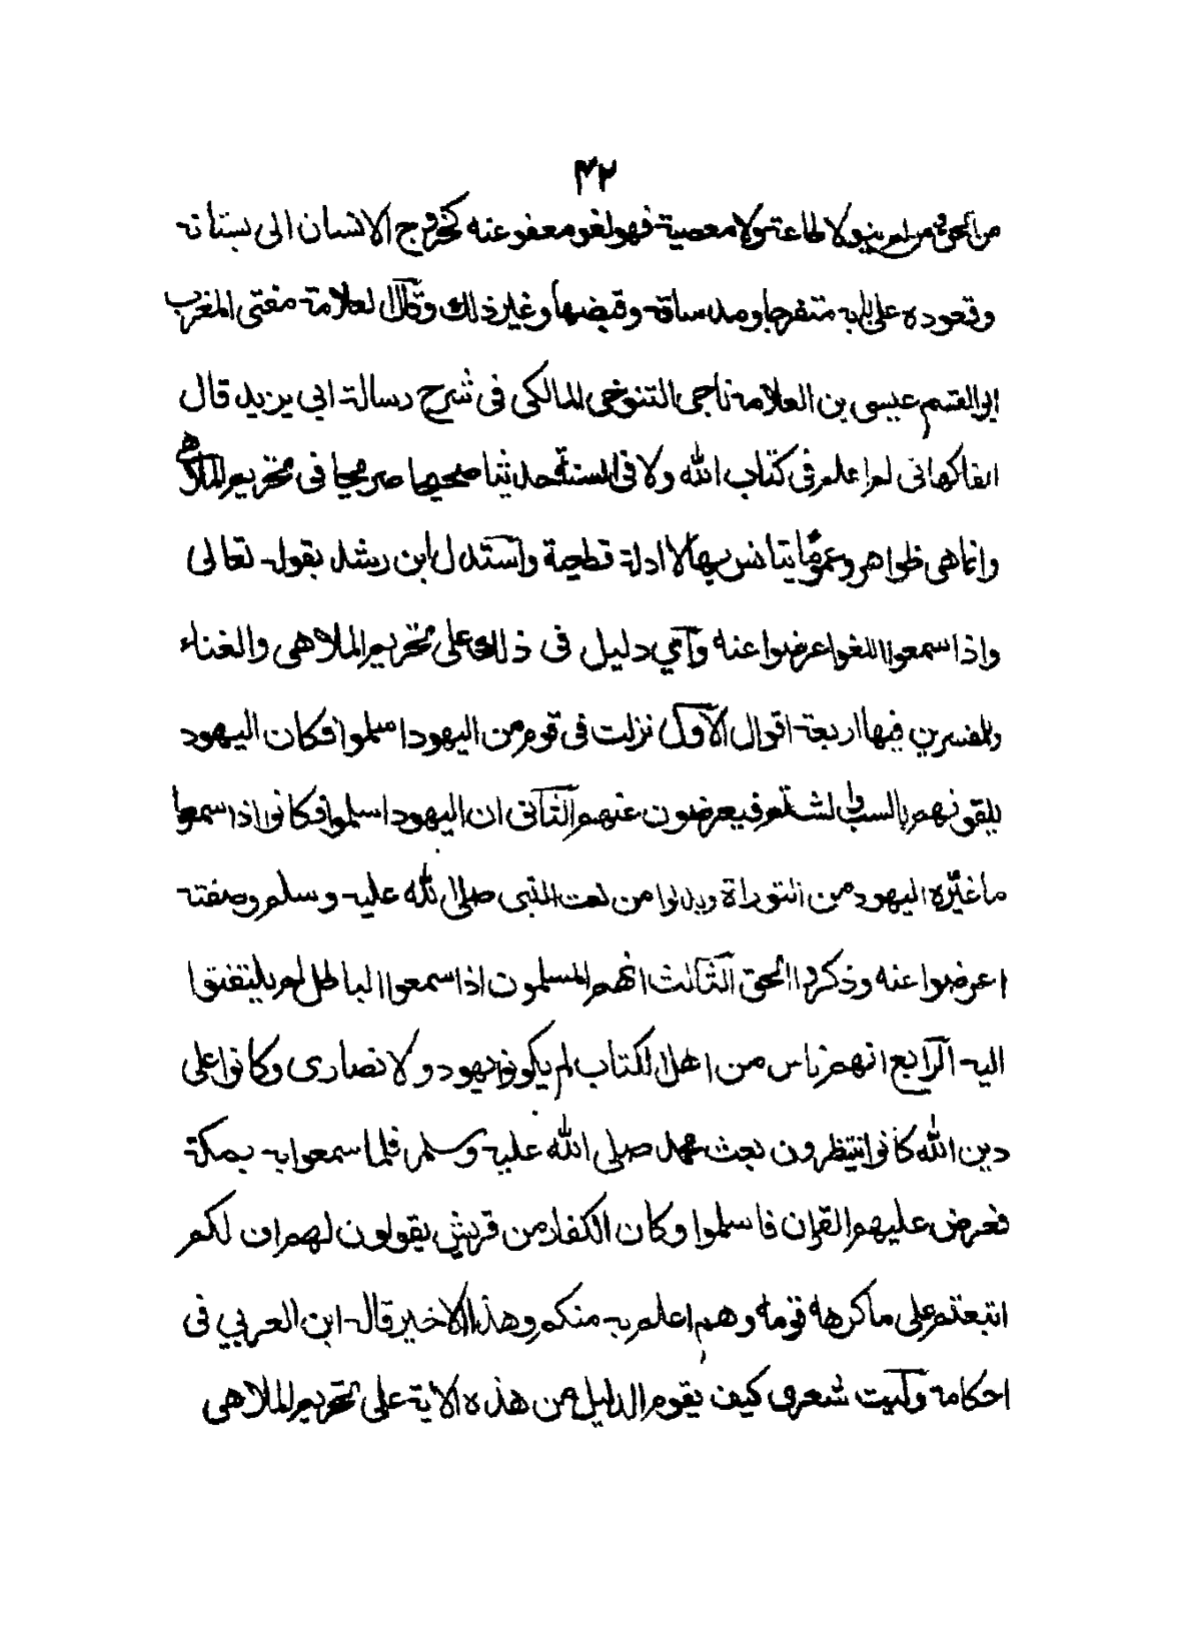 ۴۲
من لم ينو لا طاعة ولا معصية فهو لغو معفو عنه كخروج الانسان الى بستانه
وقعوده على بابه متفرجا ومد ساقه وقبضها وغير ذلك وقال العلامة مفتى المغرب
ابو القسم عيسى بن العلامة ناجى التنوخى المالكى فى شرح رسالة ابي يزيد قال
الفاكهانى لم اعلم فى كتاب الله ولا فى السنة حديثا صحيحا صريحا فى تحريم الملاهى
وانما هى ظواهر وعموما يتانس بها لا ادلة قطعية واستدل ابن رشد بقوله تعالى
واذا سمعوا اللغو اعرضوا عنه واي دليل فى ذلك على تحريم الملاهى والغناء
وللمفسرين فيها اربعة اقوال الاول نزلت فى قوم من اليهود اسلموا فكان اليهود
يلقونهم بالسب والشتم فيعرضون عنهم الثانى ان اليهود اسلموا فكانوا اذا سمعوا
ما غيّره اليهود من التوراة وبدلوا من نعت النبى صلى الله عليه وسلم وصفته
اعرضوا عنه وذكروا الحق الثالث انهم المسلمون اذا سمعوا الباطل لم يلتفتوا
اليه الرابع انهم ناس من اهل الكتاب لم يكونوا يهود ولا نصارى وكانوا على
دين الله كانوا ينتظرون بعث محمد صلى الله عليه وسلم فلما سمعوا به بمكة
فعرض عليهم القران فاسلموا وكان الكفار من قريش يقولون لهم اف لكم
اتبعتم على ما كرهه قومه وهم اعلم به منكم وهذا الاخير قاله ابن العربي فى
احكامه وليت شعرى كيف يقوم الدليل من هذه الاية على تحريم الملاهى